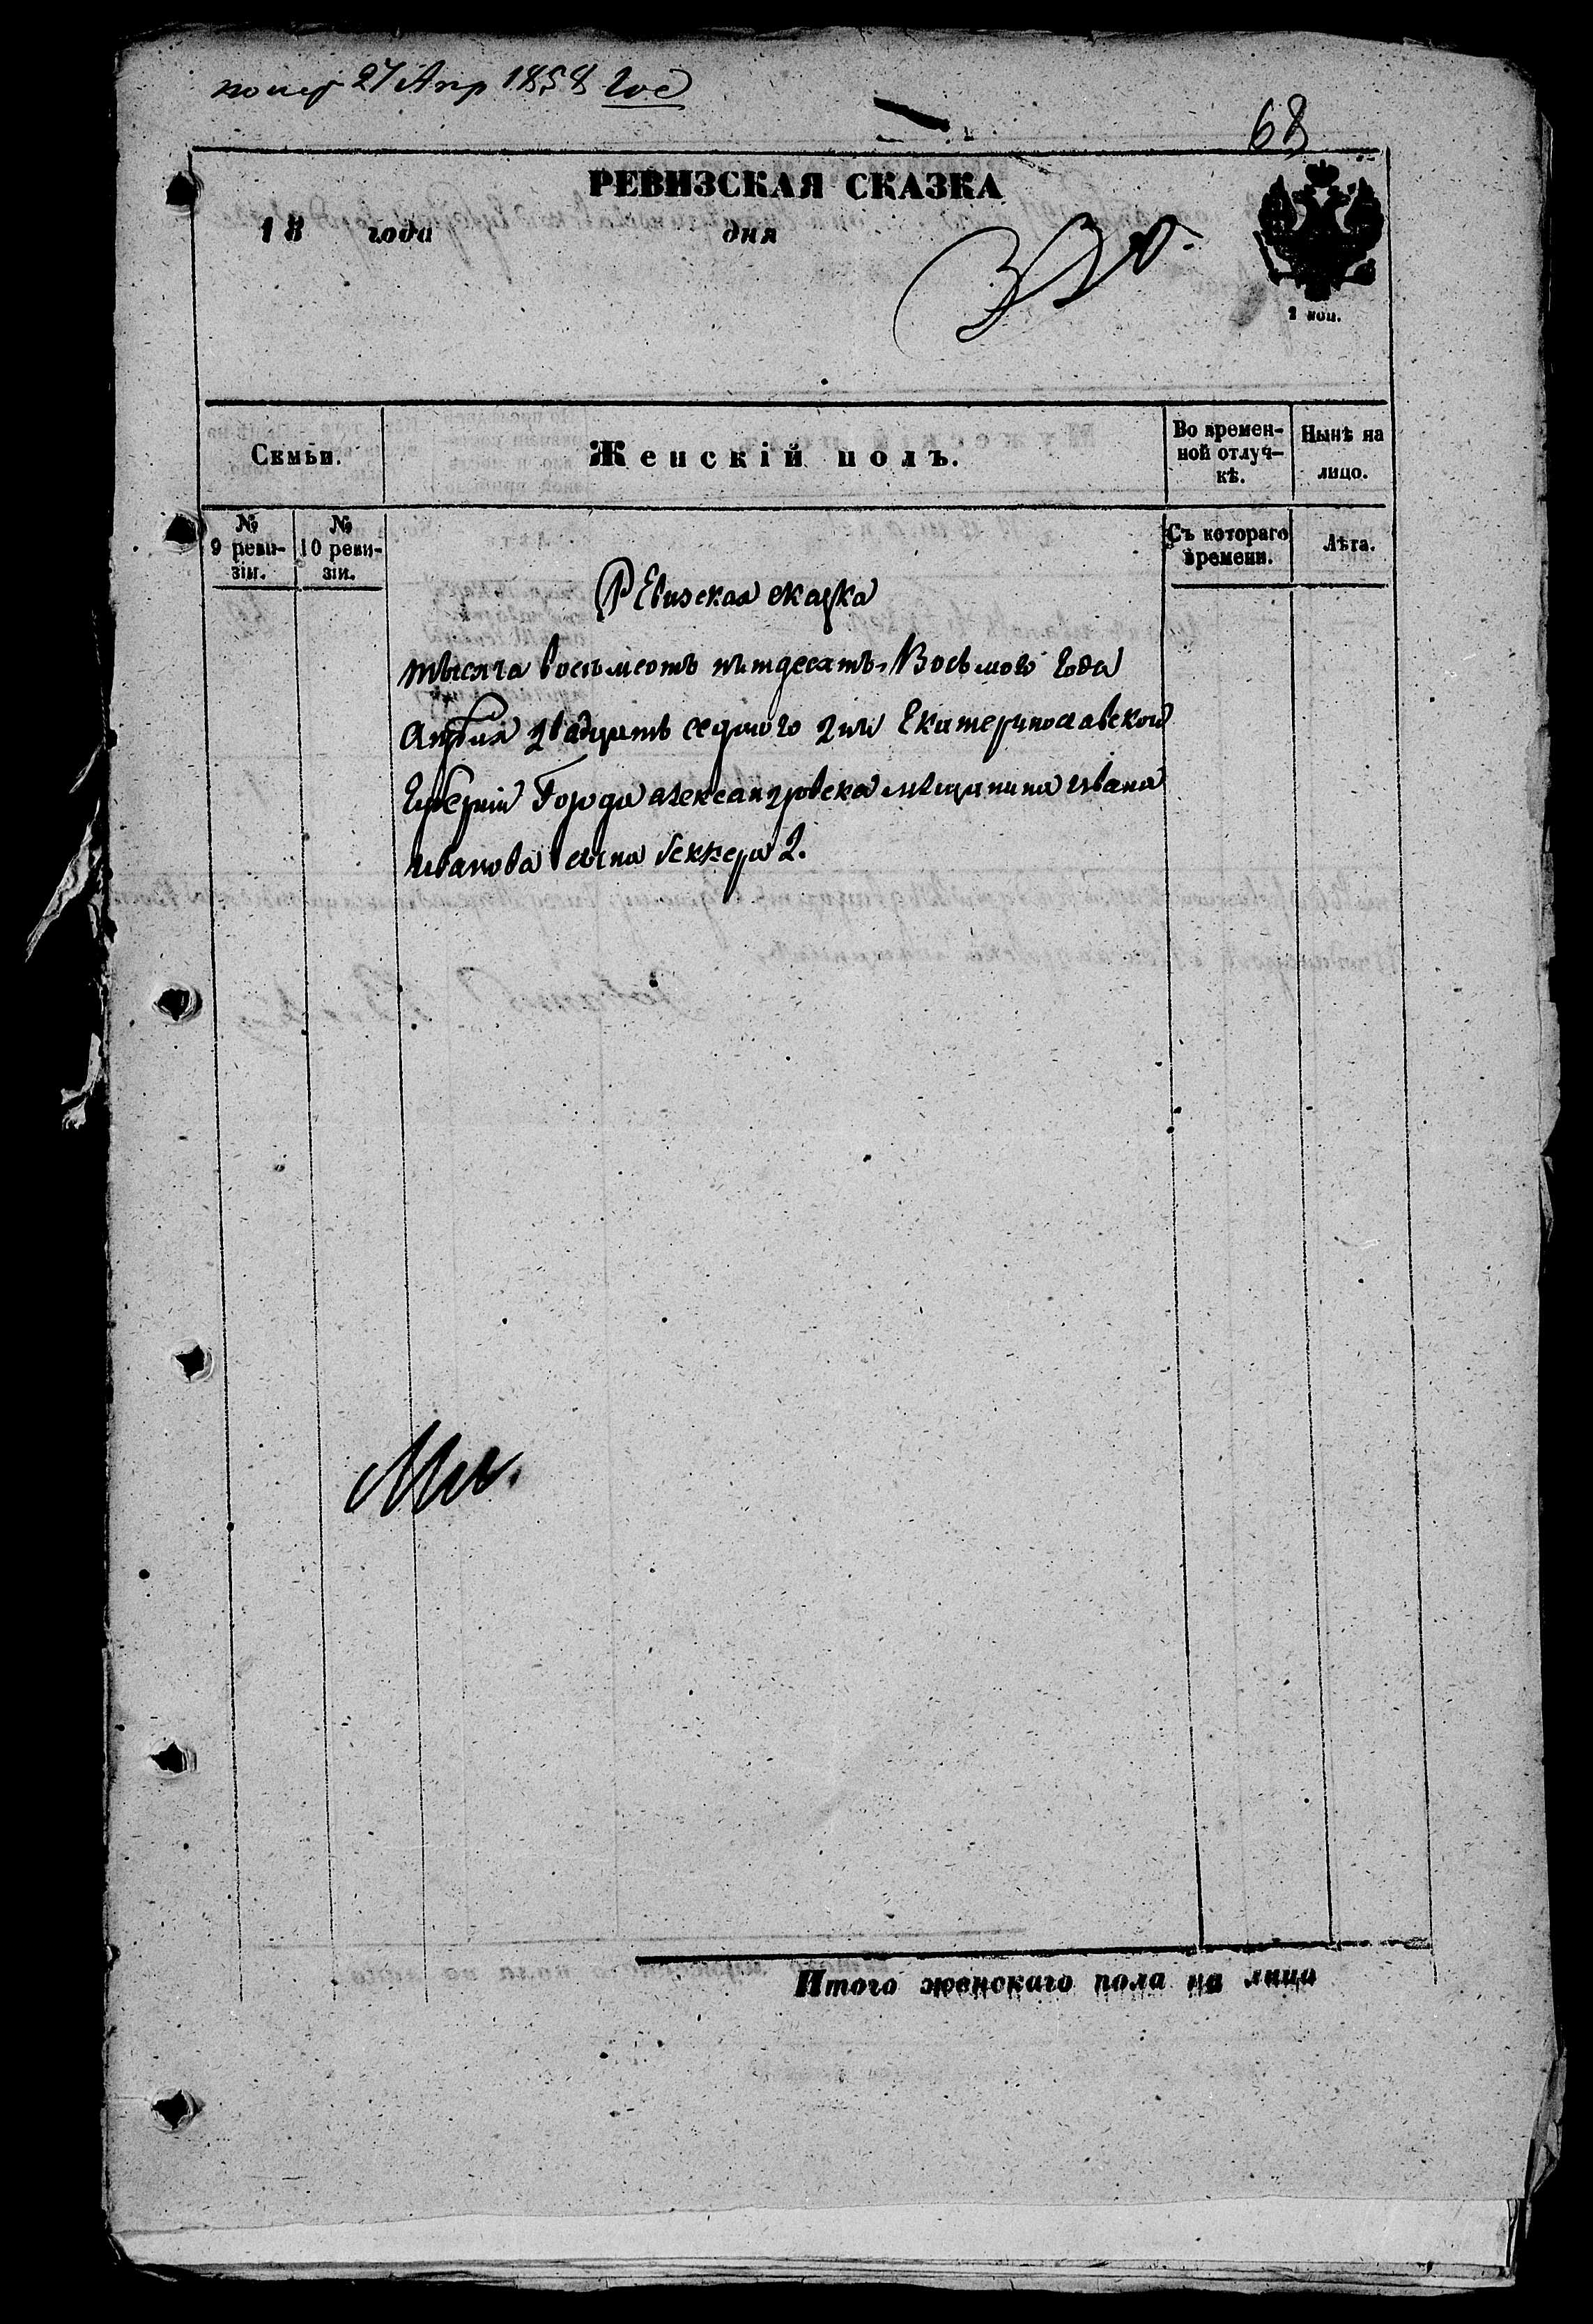 27 Апр 1858 год
68
РЕВИЗСКАЯ СКАЗКА
18 года дня
2 коп.
Семьи.
Женскій полъ.
Во времен-
ной отлуч-
кѣ.
Нынѣ на
лицо.
№
9 реви-
зіи.
№
10 реви-
зіи.
Съ котораго
времени.
Лѣта.
Ревизская сказка
тысяча восемьсотъ пятдесятъ Восьмого года
Апреля двадцать седмого дня Екатеринославской
Губерніи Города александровска мещанина ивана
иванова сына беккера 2.
Итого женскаго пола на лицо